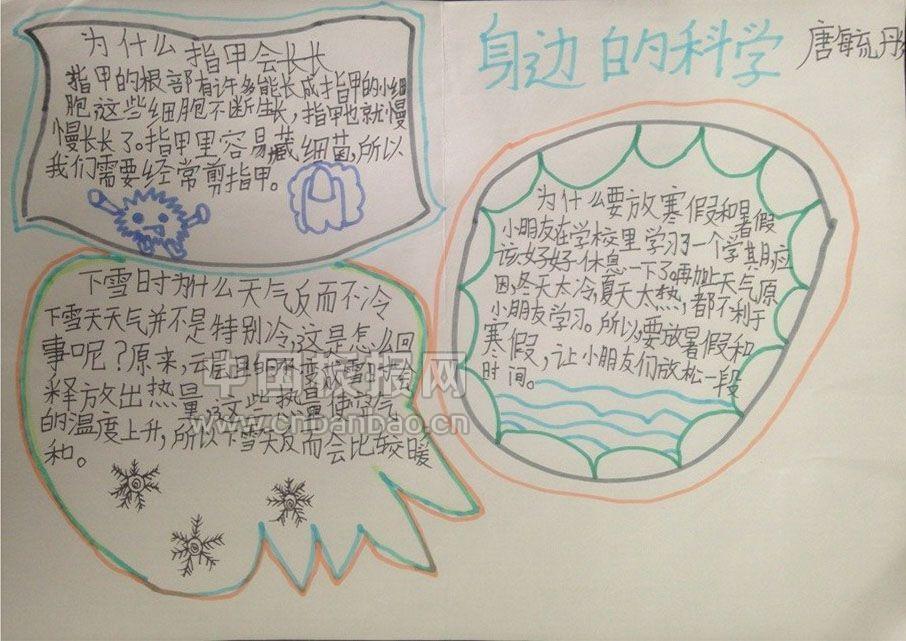 为什么指甲会长长
指甲的根部有许多能长成指甲的小细
胞,这些细胞不断生长,指甲也就慢
慢长长了。指甲里容易藏细菌,所以
我们需要经常剪指甲。
下雪时为什么天气反而不冷
下雪天天气并不是特别冷,这是怎么回
事呢?原来,云层里的
释放出热量,这些热量使空气
的温度上升,所以下雪天反而会比较暖
和。
身边的科学
唐毓彤
为什么要放寒假和暑假
小朋友在学校里学习了一个学期,应
该好好休息一下了。再加上天气原
因,冬天太冷,夏天太热,都不利于
小朋友学习。所以,要放暑假和
寒假,让小朋友们放松一段
时间。
中国板报网
www.cnbanbao.cn